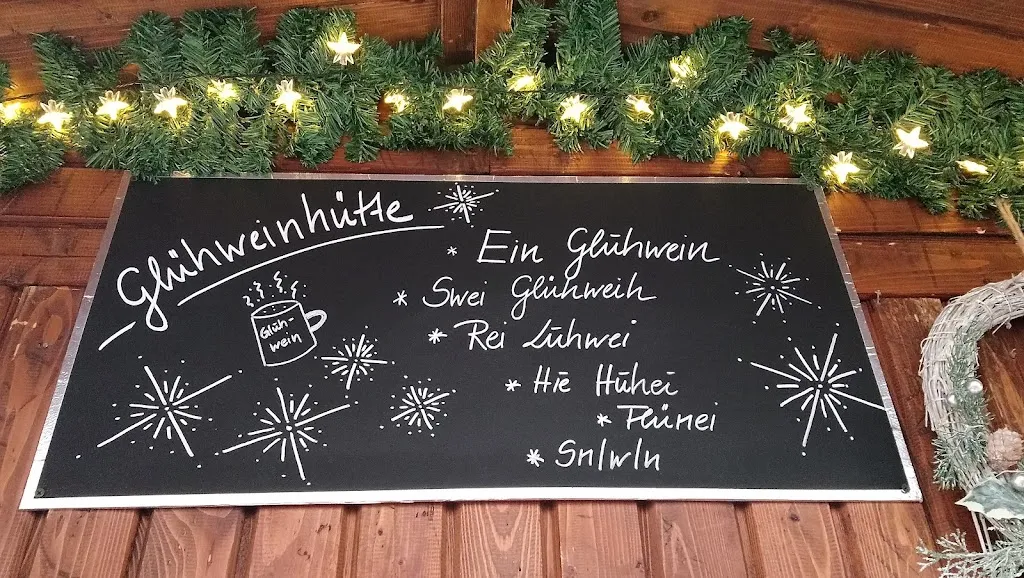 Glühweinhütte
Glüh-
wein
* Ein Glühwein
* Swei Glühweih
* Rei Lühwei
* Hie Hühei
* Plünei
* Snlwln